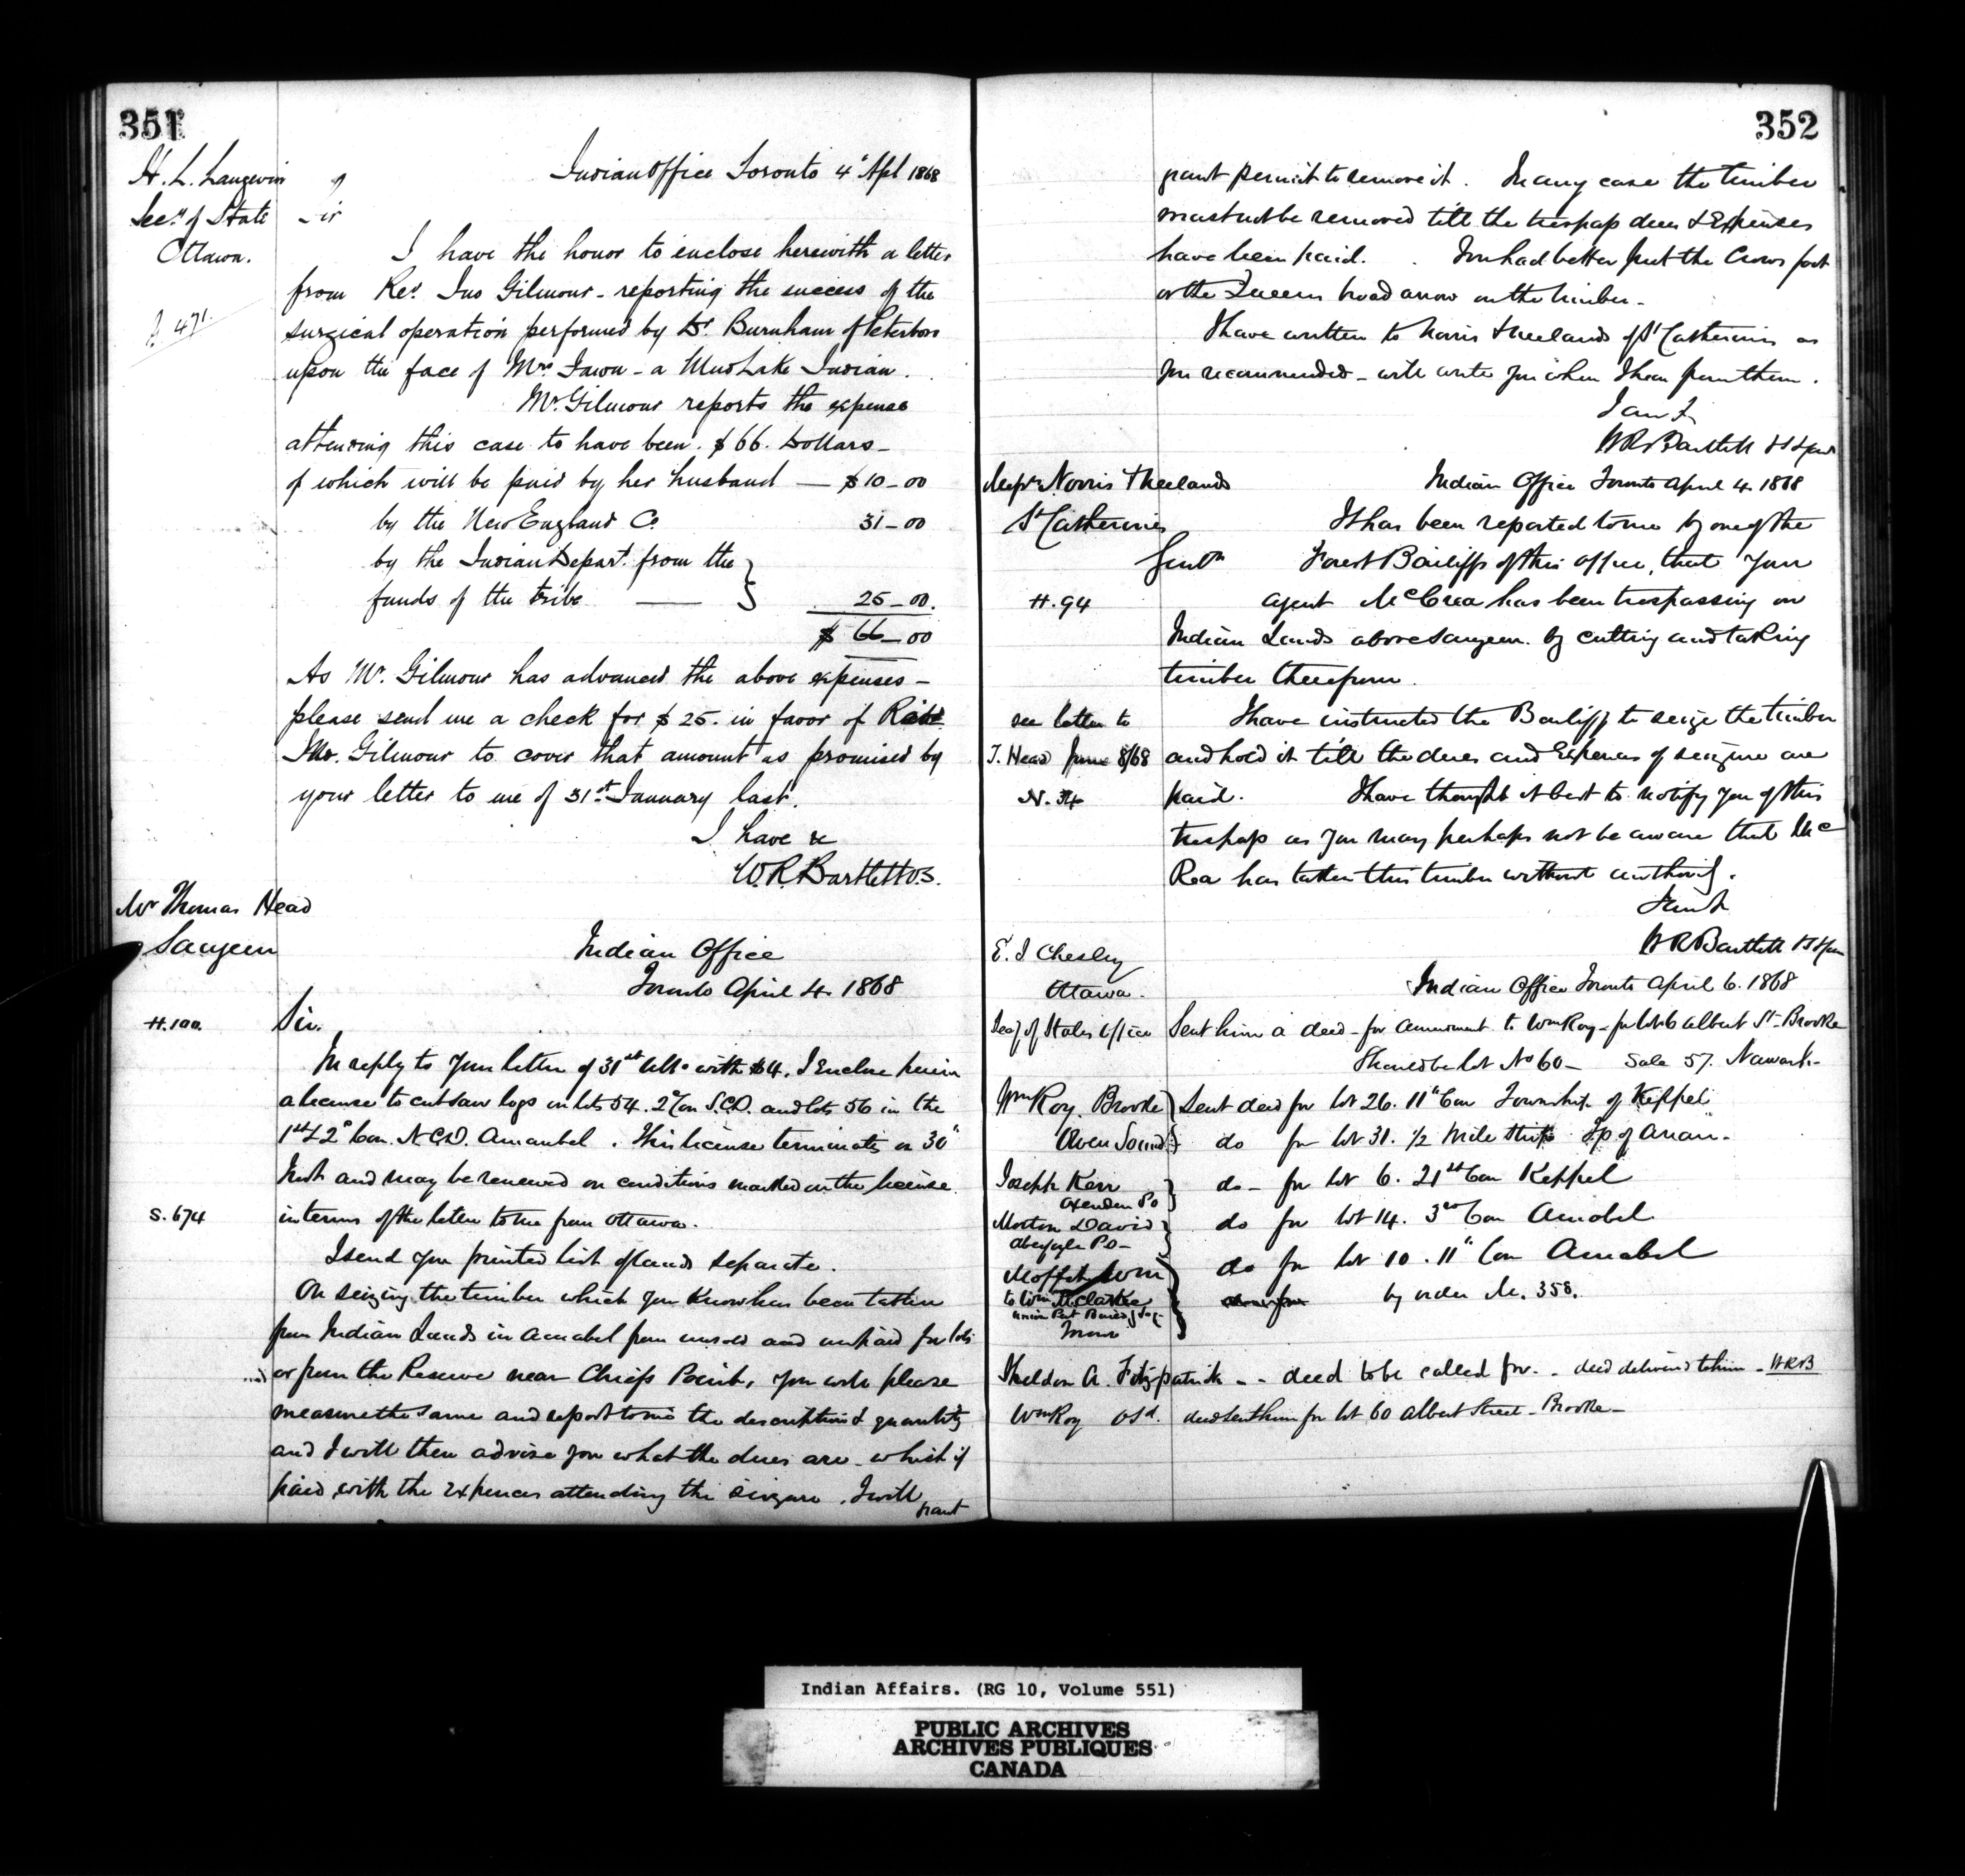 351
H. L. Langevin
Secy of State
Ottawa.
Indian Office Toronto 4" Apl 1868
Sir
I have the honor to enclose herewith a letter
from Revd Jno Gilmour - reporting the success of the
471.
surgical operation performed by Dr. Burnham of Peterboro
upon the face of Mrs Fawn - a Mud Lake Indian.
Mr. Gilmour reports the expense
attending this case to have been. $66. Dollars -
of which will be paid by her husband — $10-00
by the New England Co. 31-00
by the Indian Depart. from the
funds of the tribe — 25-00.
$ 66-00
As Mr. Gilmour has advanced the above expenses -
please send me a check for $25. in favor of Revd
Jno. Gilmour to cover that amount as promised by
your letter to me of 31st January last.
I have &c
W. R. Bartlett V.S.
Mr Thomas Head
Saugeen
Indian Office
Toronto April 4. 1868
H. 100.
Sir.
In reply to your letter of 31st Ulto with $4. I Enclose herein
a license to cut saw logs on lots 54. 2 Con S.C.D. and lots 56 in the
1st & 2d Con. N.C.D. Amabel. This license terminates on 30"
Inst and may be renewed on conditions marked on the license
S. 674
in terms of the letter to me from Ottawa.
I send you printed list of lands separate.
On seizing the timber which you know has been taken
from Indian Lands in Amabel from unsold and unpaid for lots
or from the Reserve near Chiefs Point, you will please
measure the same and report to me the description & quantity
and I will then advise you what the dues are - which if
paid with the expences attending the seizure. I will
grant
352
grant permit to remove it. In any case the timber
must not be removed till the trespass dues & Expenses
have been paid. You had better put the Crows foot
or the Queens broad arrow on the timber -
I have written to Norris & Neelands of St Catherines as
you recommended - will write you when I hear from them.
I am &c
W R Bartlett
Messrs Norris & Neelands
St Catherines
Indian Office Toronto April 4. 1868
It has been reported to me by one of the
Gentn
Forest Bailiffs of this office, that your
H. 94
agent McCrea has been trespassing on
Indian Lands above Saugeen. by cutting and taking
timber therefrom.
see letter to
T. Head June 8/68
N. 34
I have instructed the Bailiff to seize the timber
and hold it till the dues and Expenses of seizure are
paid. I have thought it best to notify you of this
trespass as you may perhaps not be aware that Mc
Rea has taken this timber without authority.
I am &c
W R Bartlett
E. J Chesley
Ottawa.
Indian Office Toronto April 6. 1868
Secy of States Office
Sent him a deed - for amendment to Wm Roy - for lot 6 Albert St - Brooke
Should be lot No 60 - Sale 57. Nawash -
Wm Roy. Brooke
Sent deed for lot 26. 11" Con Township of Keppel
Owen Sound
do for lot 31. 1/2 Mile Strip Tp of Arran -
Joseph Kerr
Oxenden Po
do - for lot 6. 21st Con Keppel
Morton David
Aberfoyle PO -
do for lot 14. 3rd Con Amabel
Moffat Wm
do for lot 10. 11" Con Amabel
to Wm McClarkee
by order M. 358.
Toronto
Sheldon A. Fitzpatrick - - deed to be called for. - deed delivered to him - WRB
Wm Roy O Sd. deed sent him for lot 60 Albert Street - Brooke -
Indian Affairs. (RG 10, Volume 551)
PUBLIC ARCHIVES
ARCHIVES PUBLIQUES
CANADA